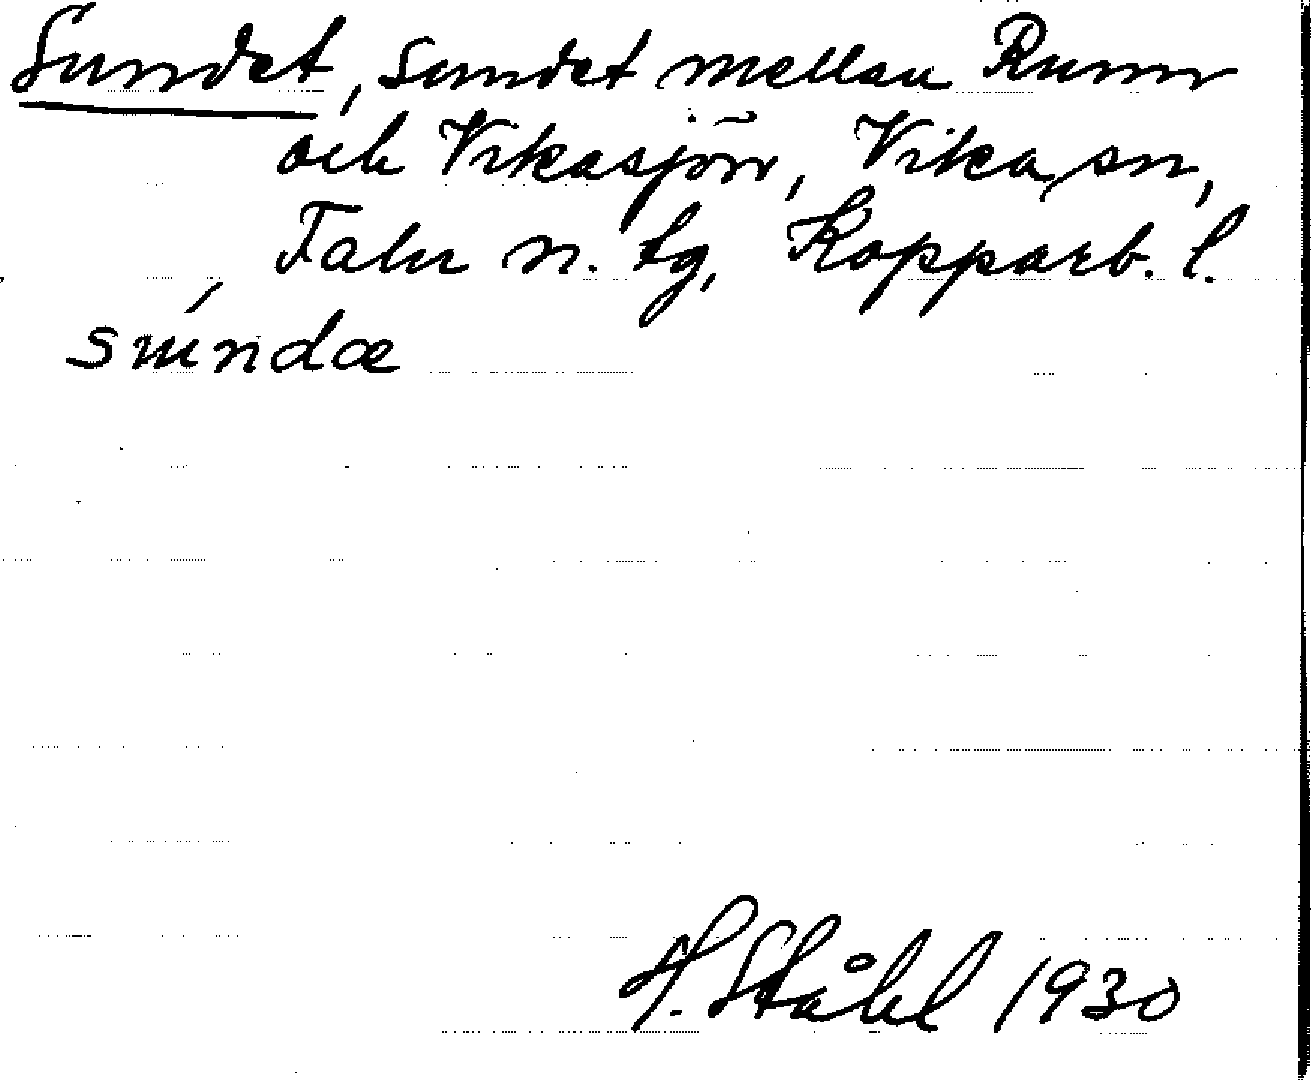 Sundet, Sundet mellan Runn
och Vikasjön, Vika sn,
Falu n. tg, Kopparb. l.
sundæ
H. Ståhl 1930